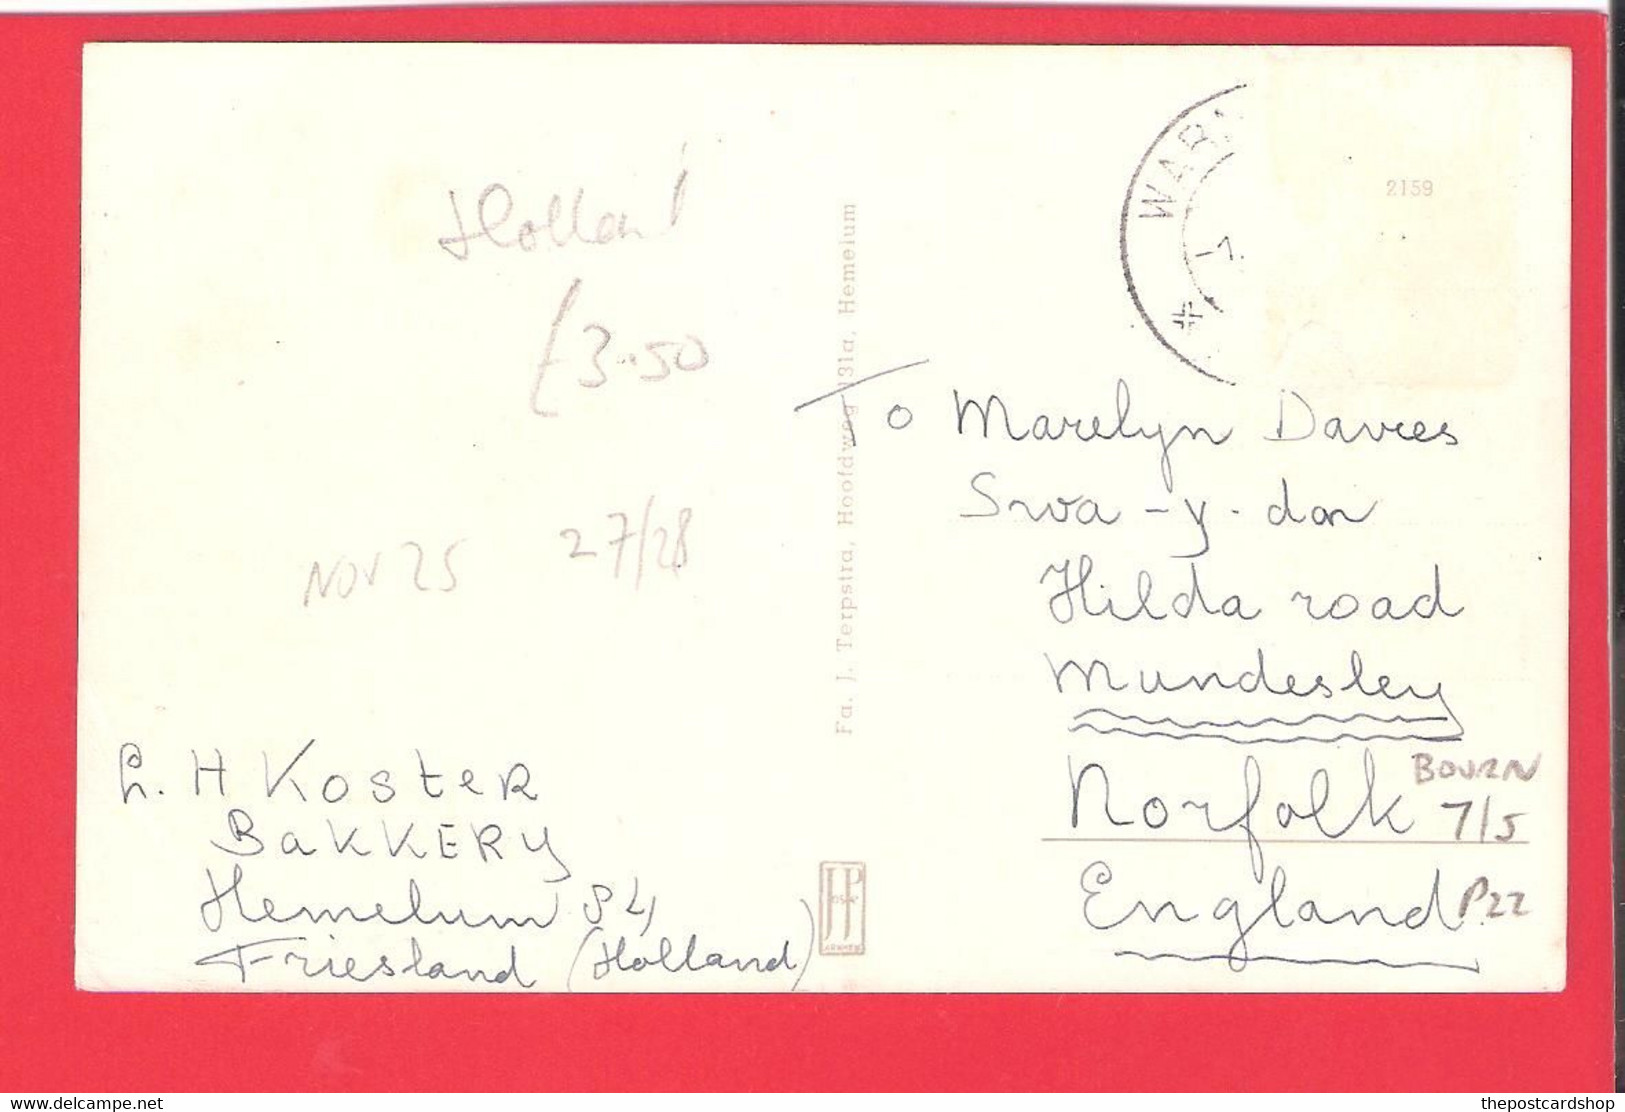 Holland
£3.50
NOV 25 27/28
L. H Koster
BakKERY
Hemelum 84
Friesland (Holland)
Fa. J. Terpstra, Hoofdweg 131a, Hemelum
JP
ARNHEM
WAR
2159
To Marelyn Davies
Swa-y-don
Hilda road
Mundesley
Norfolk
England
BOURN
7/5
P22
www.delcampe.net
thepostcardshop